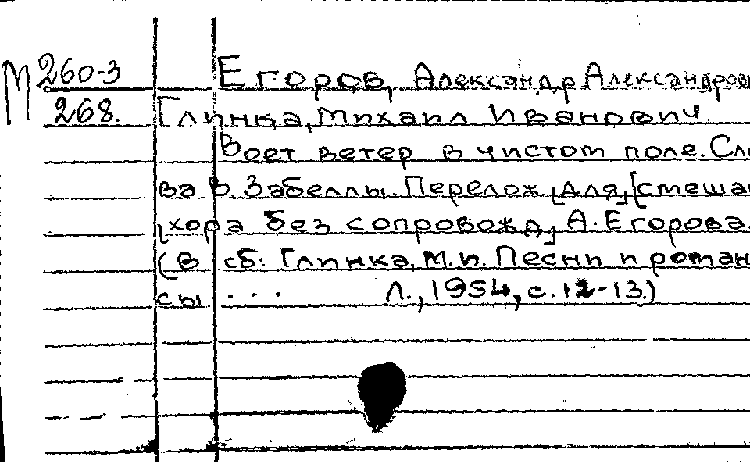 М 260-3 Егоров, Александр Александрови
268. Глинка, Михаил Иванович
Воет ветер в чистом поле. Сло
ва В. Забеллы. Перелож. [для] [смешан
[хора без сопровожд.] А. Егорова.
(В сб: Глинка, М.И. Песни и роман
сы ... Л., 1954, с. 12-13.)